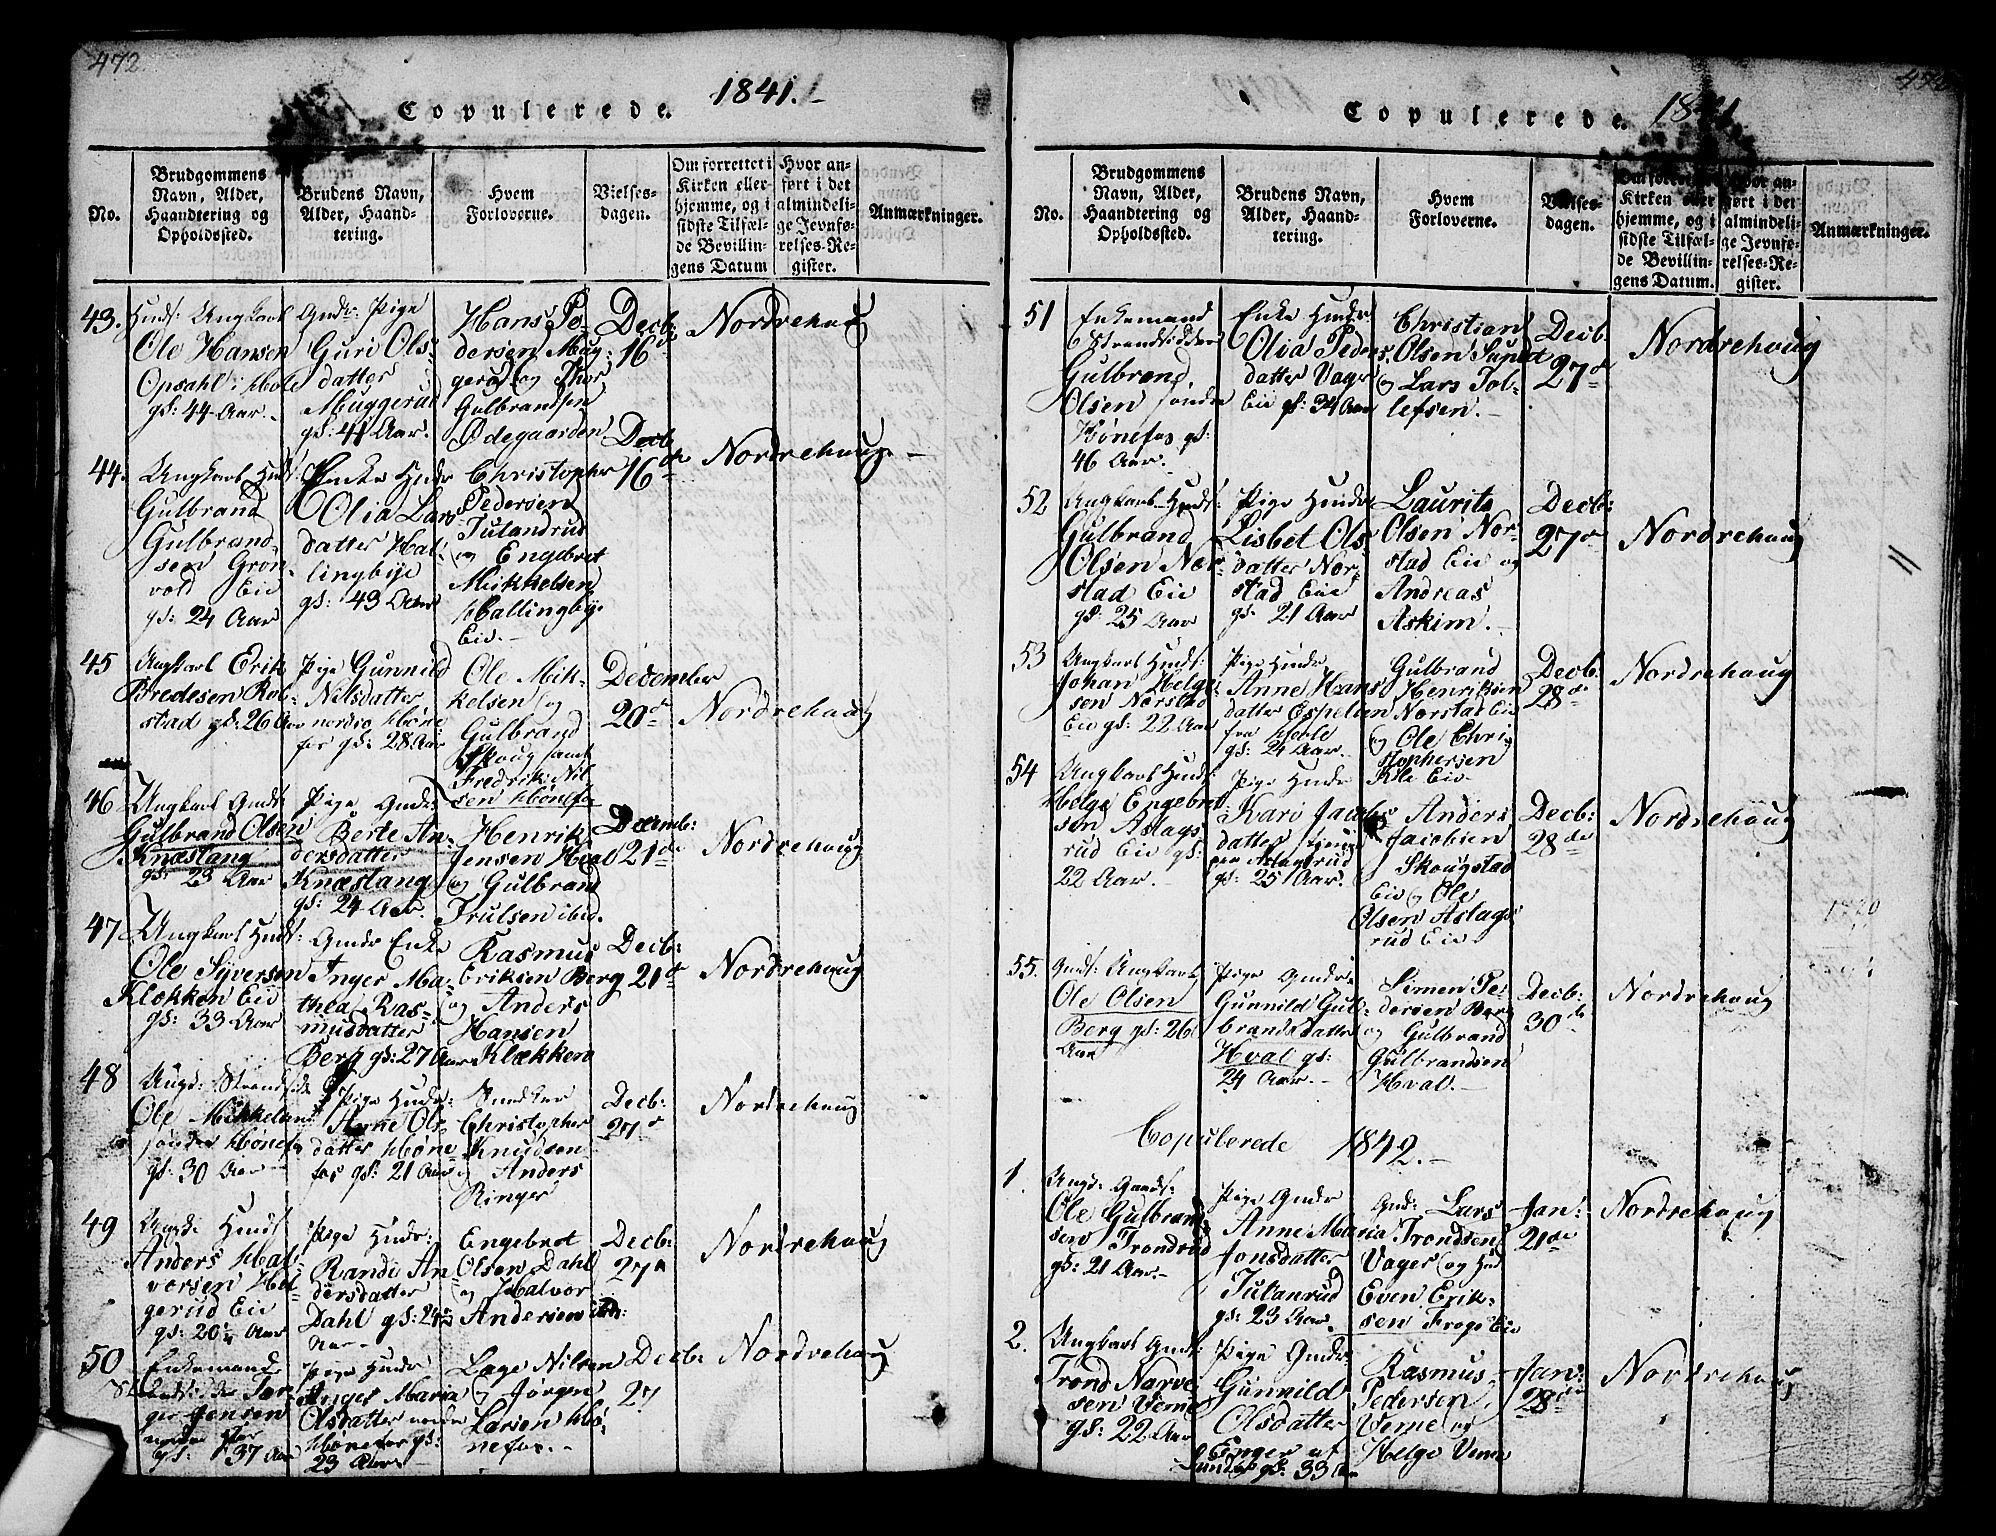 472
Copulerede. 1841.-
No.
Brudgommens
Navn, Alder,
Haandtering og
Opholdssted.
Brudens Navn,
Alder, Haand-
tering.
Hvem
Forloverne.
Vielses-
dagen.
Om forrettet i
Kirken eller
hjemme, og i
sidste Tilfæl-
de Bevillin-
gens Datum
Hvor an-
ført i det
almindeli-
ge Jevnfø-
relses-Re-
gister.
Anmærkninger.
43.
Ungkarl
Ole Hansen
Opsahl i Hole
gl: 44 Aar.-
Pige
Guri Ols-
datter
Muggerud
gl: 44 Aar.
Hans Pe-
dersen Mug-
gerud og Thor
Gulbrandsen
Ødegaarden
Decb:
16de
Nordrehoug
44.
Ungkarl Huds:
Gulbrand
Gulbrand-
sen Grøn-
vold Eie
gl: 24 Aar
Enke Hudr
Olia Lars
datter Hal-
lingbye
gl: 43 Aar
Christopher
Pedersen
Julandrud
og Engebret
Mikkelsen
Hallingbye
Eie.-
Decb:
16de
Nordrehoug -
45
Ungkarl Erik
Bredesen Rol-
stad gl: 26 Aar
Pige Gunnild
Nilsdatter
nordre Høne
fos gl: 28 Aar
Ole Mik-
kelsen og
Gulbrand
Skoug samt
Fredrik Nil-
sen Hønefos
December
20de
Nordrehoug
46
Ungkarl Gmds:
Gulbrand Olsen
Knæstang
gl: 23 Aar
Pige Gmdr:
Berte An-
dersdatter
Knæstang
gl: 24 Aar.
Henrik
Jensen Hval
og Gulbrand
Trulsen ibid.
Decemb:
21de
Nordrehoug
47
Ungkarl Huds:
Ole Syversen
Klækken Eie
gl: 33 Aar
Gmdr Enke
Inger Ma-
thea Ras-
musdatter
Berg gl: 27 Aar
Rasmus
Eriksen Berg
og Anders
Hansen
Klækken
Decb:
21de
Nordrehoug
48
Ungk: Strandsidd
Ole Mikkelsen
søndre Hønefos
gl: 30 Aar
Pige Hudr:
Anne Ols
datter Høne-
fos gl: 21 Aar
Snedker
Christopher
Knudsen
og Anders
Ringer
Decb:
27de
Nordrehoug
49
Ungk: Huds:
Anders Hal-
vorsen Hel-
gerud Eie
gl: 20 1/4 Aar
Pige Hudr:
Randi An-
dersdatter
Dahl gl: 24
Aar -
Engebret
Olsen Dahl
og Halvor
Andersen
Decb:
27de
Nordrehoug
50
Enkemand
Jensen
gl: 37 Aar
Pige Hudr
Inger Maria
Olsdatter nordre
Hønefos gl:
23 Aar
Lage Nilsen
og Jørgen
Larsen Hø-
nefos.-
Decb:
27
Nordrehoug
Copulerede. 1841
No.
Brudgommens
Navn, Alder,
Haandtering og
Opholdssted.
Brudens Navn,
Alder, Haand-
tering.
Hvem
Forloverne.
Vielses-
dagen.
Om forrettet i
Kirken eller
hjemme, og i
sidste Tilfæl-
de Bevillin-
gens Datum.
Hvor an-
ført i det
almindeli-
ge Jevnfø-
relses-Re-
gister.
Anmærkninger.
51
Enkemand
Strandsidder
Gulbrand
Olsen søndre
Hønefos gl:
46 Aar.
Enke Hudr
Olia Peders
datter Vager
Eie gl: 34 Aar
Christian
Olsen Sundet
og Lars Tol-
lefsen.-
Decb
27de
Nordrehoug
52
Ungkarl Huds:
Gulbrand
Olsen Nor-
stad Eie
gl: 25 Aar
Pige Hudr
Lisbet Ols
datter Nor-
stad Eie
gl: 21 Aar
Laurits
Olsen Nor-
stad Eie og
Andreas
Askim.-
Decb:
27de
Nordrehoug
53
Ungkarl Huds:
Johan Helge-
sen Norstad
Eie gl: 22 Aar
Pige Hudr
Anne Hans
datter Espelien
fra Hole
gl: 24 Aar.
Gulbrand
Henriksen
Norstad Eie
og Ole Chri-
stophersen
Eie
Decb:
28de
Nordrehoug
54
Ungkarl Huds:
Helge Engebret
sen Aslags-
rud Eie gl:
22 Aar.
Pige Hudr
Kari Jacobs
datter
Aslagsrud
gl: 25 Aar.
Anders
Jacobsen
Skougstad
Eie og Ole
Olsen Aslags-
rud Eie
Decb:
28de
Nordrehoug
55.
Gmds: Ungkarl
Ole Olsen
Berg gl: 26
Aar
Pige Gmdr
Gunnild Gul-
brandsdatter
Hval gl:
24 Aar.-
Simen Pe-
dersen Berg
og Gulbrand
Gulbrandsen
Hval.-
Decb:
30de
Nordrehoug
Copulerede 1842.-
1.
Ungk: Gmds:
Ole Gulbrand
sen Trondrud
gl: 21 Aar.-
Pige Gmdr
Anne Maria
Jonsdatter
Julanrud
gl: 23 Aar.
Gmd: Lars
Trondsen
Vager og Hmd
Even Erik-
sen Frogs Eie
Jan:
21de
Nordrehoug
2.
Ungkarl Gmds:
Trond Narve-
sen Veme
gl: 22 Aar
Pige Gmdr:
Gunnild
Olsdatter
Enger af
gl: 33 Aar
Rasmus
Pedersen
Veme og
Helge Veme
Jan:
28de
Nordrehoug